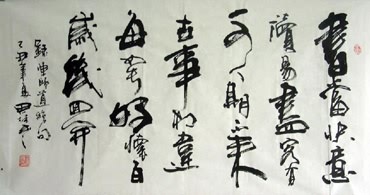 書當快意
讀易盡客有
可人期不來
世事相違
每如此好懷百
歲幾回開
錄陳師道